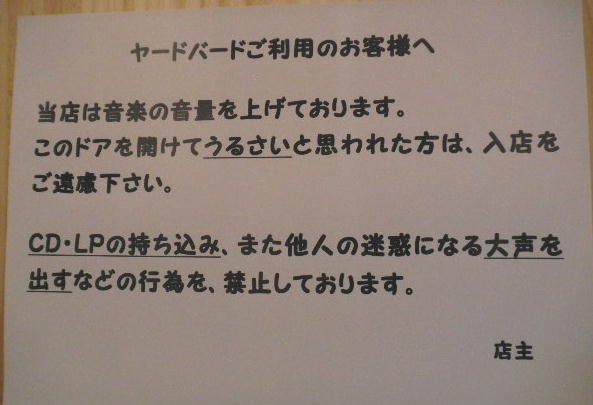 ヤードバードご利用のお客様へ
当店は音楽の音量を上げております。
このドアを開けてうるさいと思われた方は、入店を
ご遠慮下さい。
CD・LPの持ち込み、また他人の迷惑になる大声を
出すなどの行為を、禁止しております。
店主